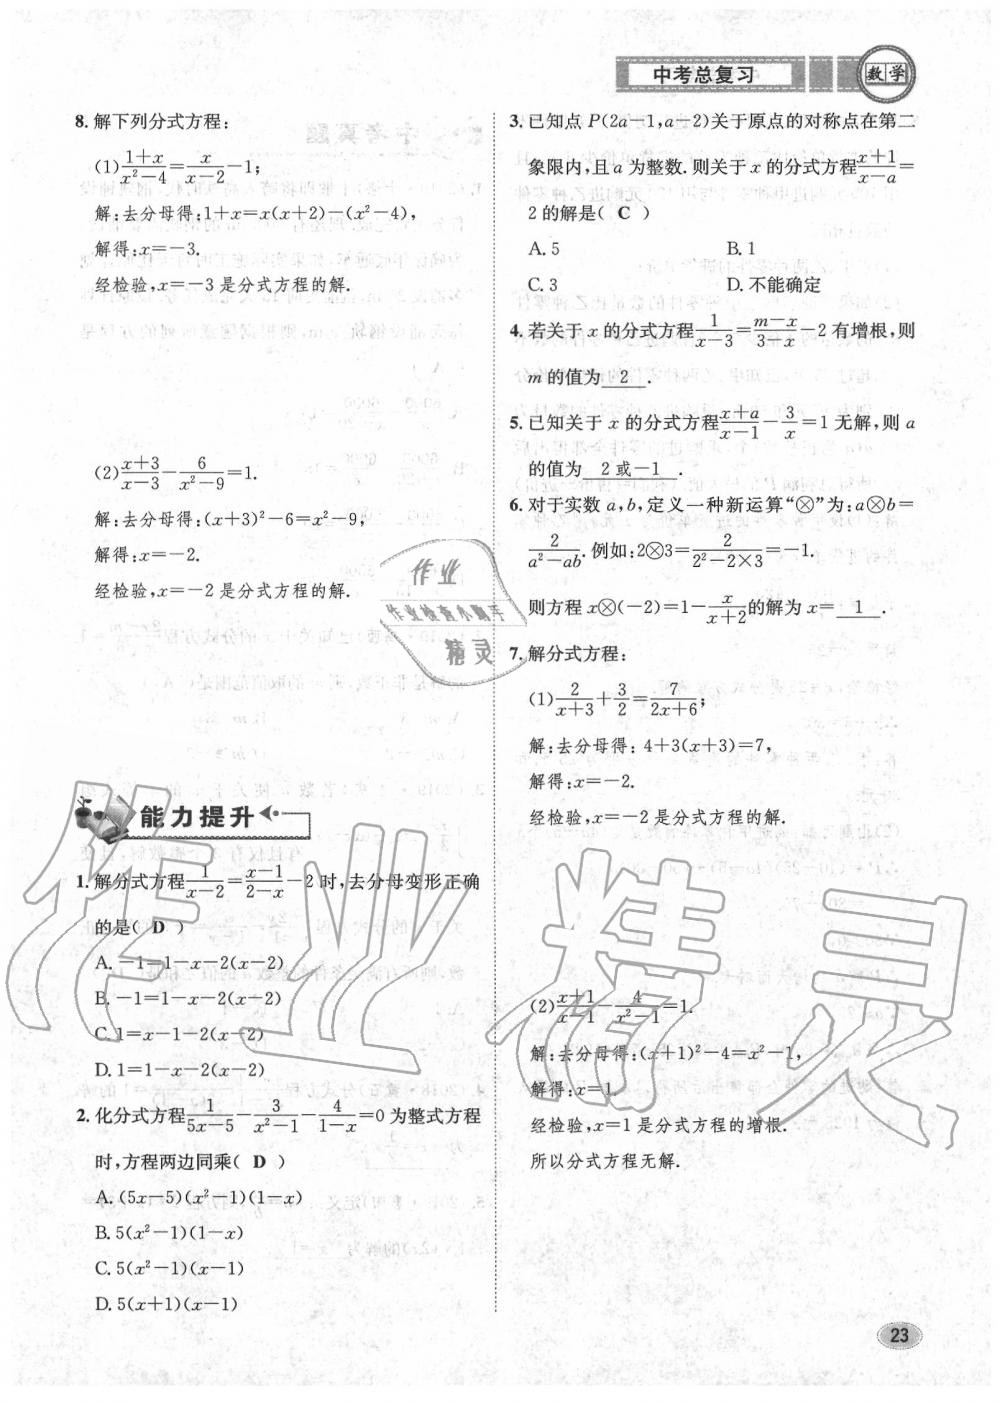 中考总复习
数学
8. 解下列分式方程:
(1) \frac{1+x}{x²-4}=\frac{x}{x-2}-1;
解:去分母得:1+x=x(x+2)-(x²-4),
解得:x=-3.
经检验,x=-3是分式方程的解.
(2) \frac{x+3}{x-3}-\frac{6}{x²-9}=1.
解:去分母得:(x+3)²-6=x²-9,
解得:x=-2.
经检验,x=-2是分式方程的解.
能力提升
1. 解分式方程\frac{1}{x-2}=\frac{x-1}{2-x}-2时,去分母变形正确
的是( D )
A. -1=1-x-2(x-2)
B. -1=1-x-2(x-2)
C. 1=x-1-2(x-2)
D. 1=1-x-2(x-2)
2. 化分式方程\frac{1}{5x-5}-\frac{3}{x²-1}-\frac{4}{1-x}=0为整式方程
时,方程两边同乘( D )
A. (5x-5)(x²-1)(1-x)
B. 5(x²-1)(1-x)
C. 5(x²-1)(x-1)
D. 5(x+1)(x-1)
3. 已知点P(2a-1,a-2)关于原点的对称点在第二
象限内,且a为整数.则关于x的分式方程\frac{x+1}{x-a}=
2的解是( C )
A. 5 B. 1
C. 3 D. 不能确定
4. 若关于x的分式方程\frac{1}{x-3}=\frac{m-x}{3-x}-2有增根,则
m的值为 2 .
5. 已知关于x的分式方程\frac{x+a}{x-1}-\frac{3}{x}=1无解,则a
的值为 2或-1 .
6. 对于实数a,b,定义一种新运算“⊗”为:a⊗b=
\frac{2}{a²-ab}.例如:2⊗3=\frac{2}{2²-2×3}=-1.
则方程x⊗(-2)=1-\frac{x}{x+2}的解为x= 1 .
7. 解分式方程:
(1) \frac{2}{x+3}+\frac{3}{2}=\frac{7}{2x+6};
解:去分母得:4+3(x+3)=7,
解得:x=-2.
经检验,x=-2是分式方程的解.
(2) \frac{x+1}{x-1}-\frac{4}{x²-1}=1.
解:去分母得:(x+1)²-4=x²-1,
解得:x=1.
经检验,x=1是分式方程的增根.
所以分式方程无解.
23
作业
作业检查小助手
精灵
作业精灵